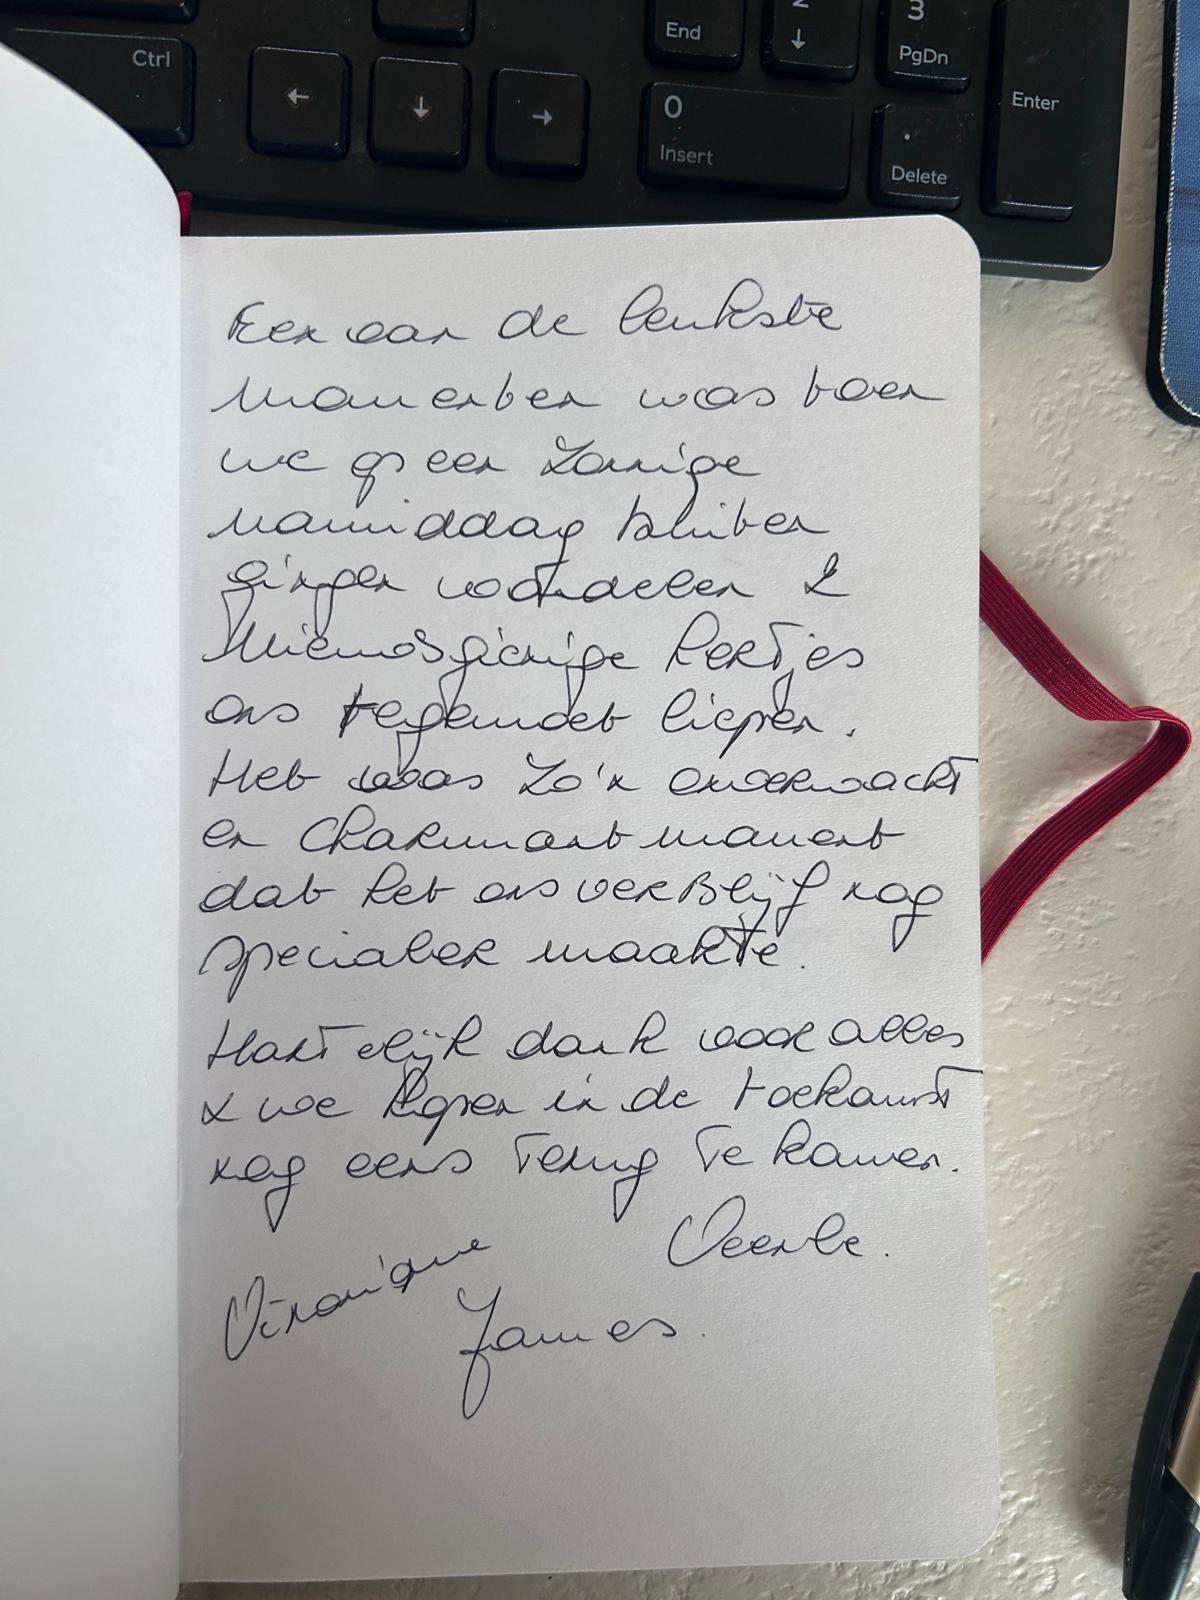 Ctrl
←
↓
→
End
2
↓
3
PgDn
0
Insert
.
Delete
Enter
Een van de leukste
momenten was toen
we op een zonnige
namiddag buiten
gingen wandelen &
nieuwsgierige hertjes
ons tegemoet liepen.
Het was zo'n onverwacht
en charmant moment
dat het ons verblijf nog
specialer maakte.
Hartelijk dank voor alles
& we hopen in de toekomst
nog eens terug te komen.
Veerle.
Véronique
James.